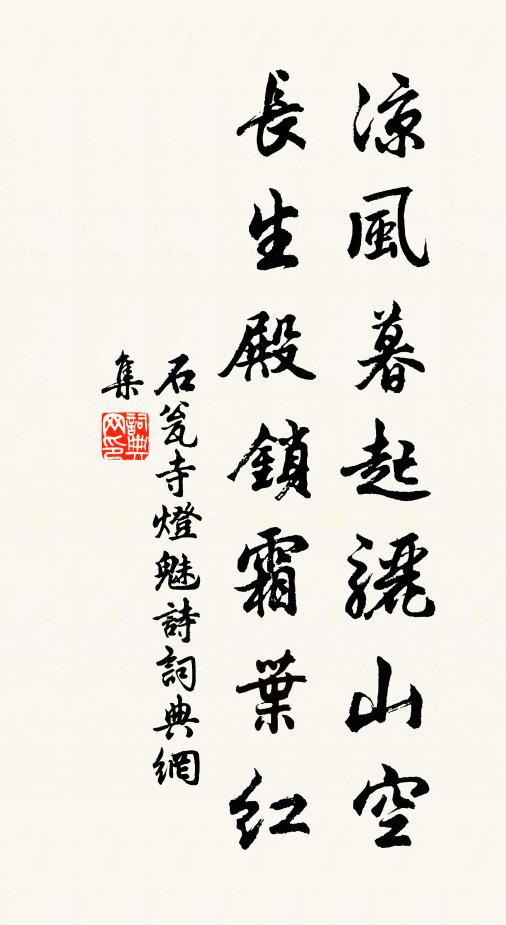 凉風暮起驪山空
長生殿鎖霜葉紅
石瓮寺燈魅詩詞典網
集
詞典網印